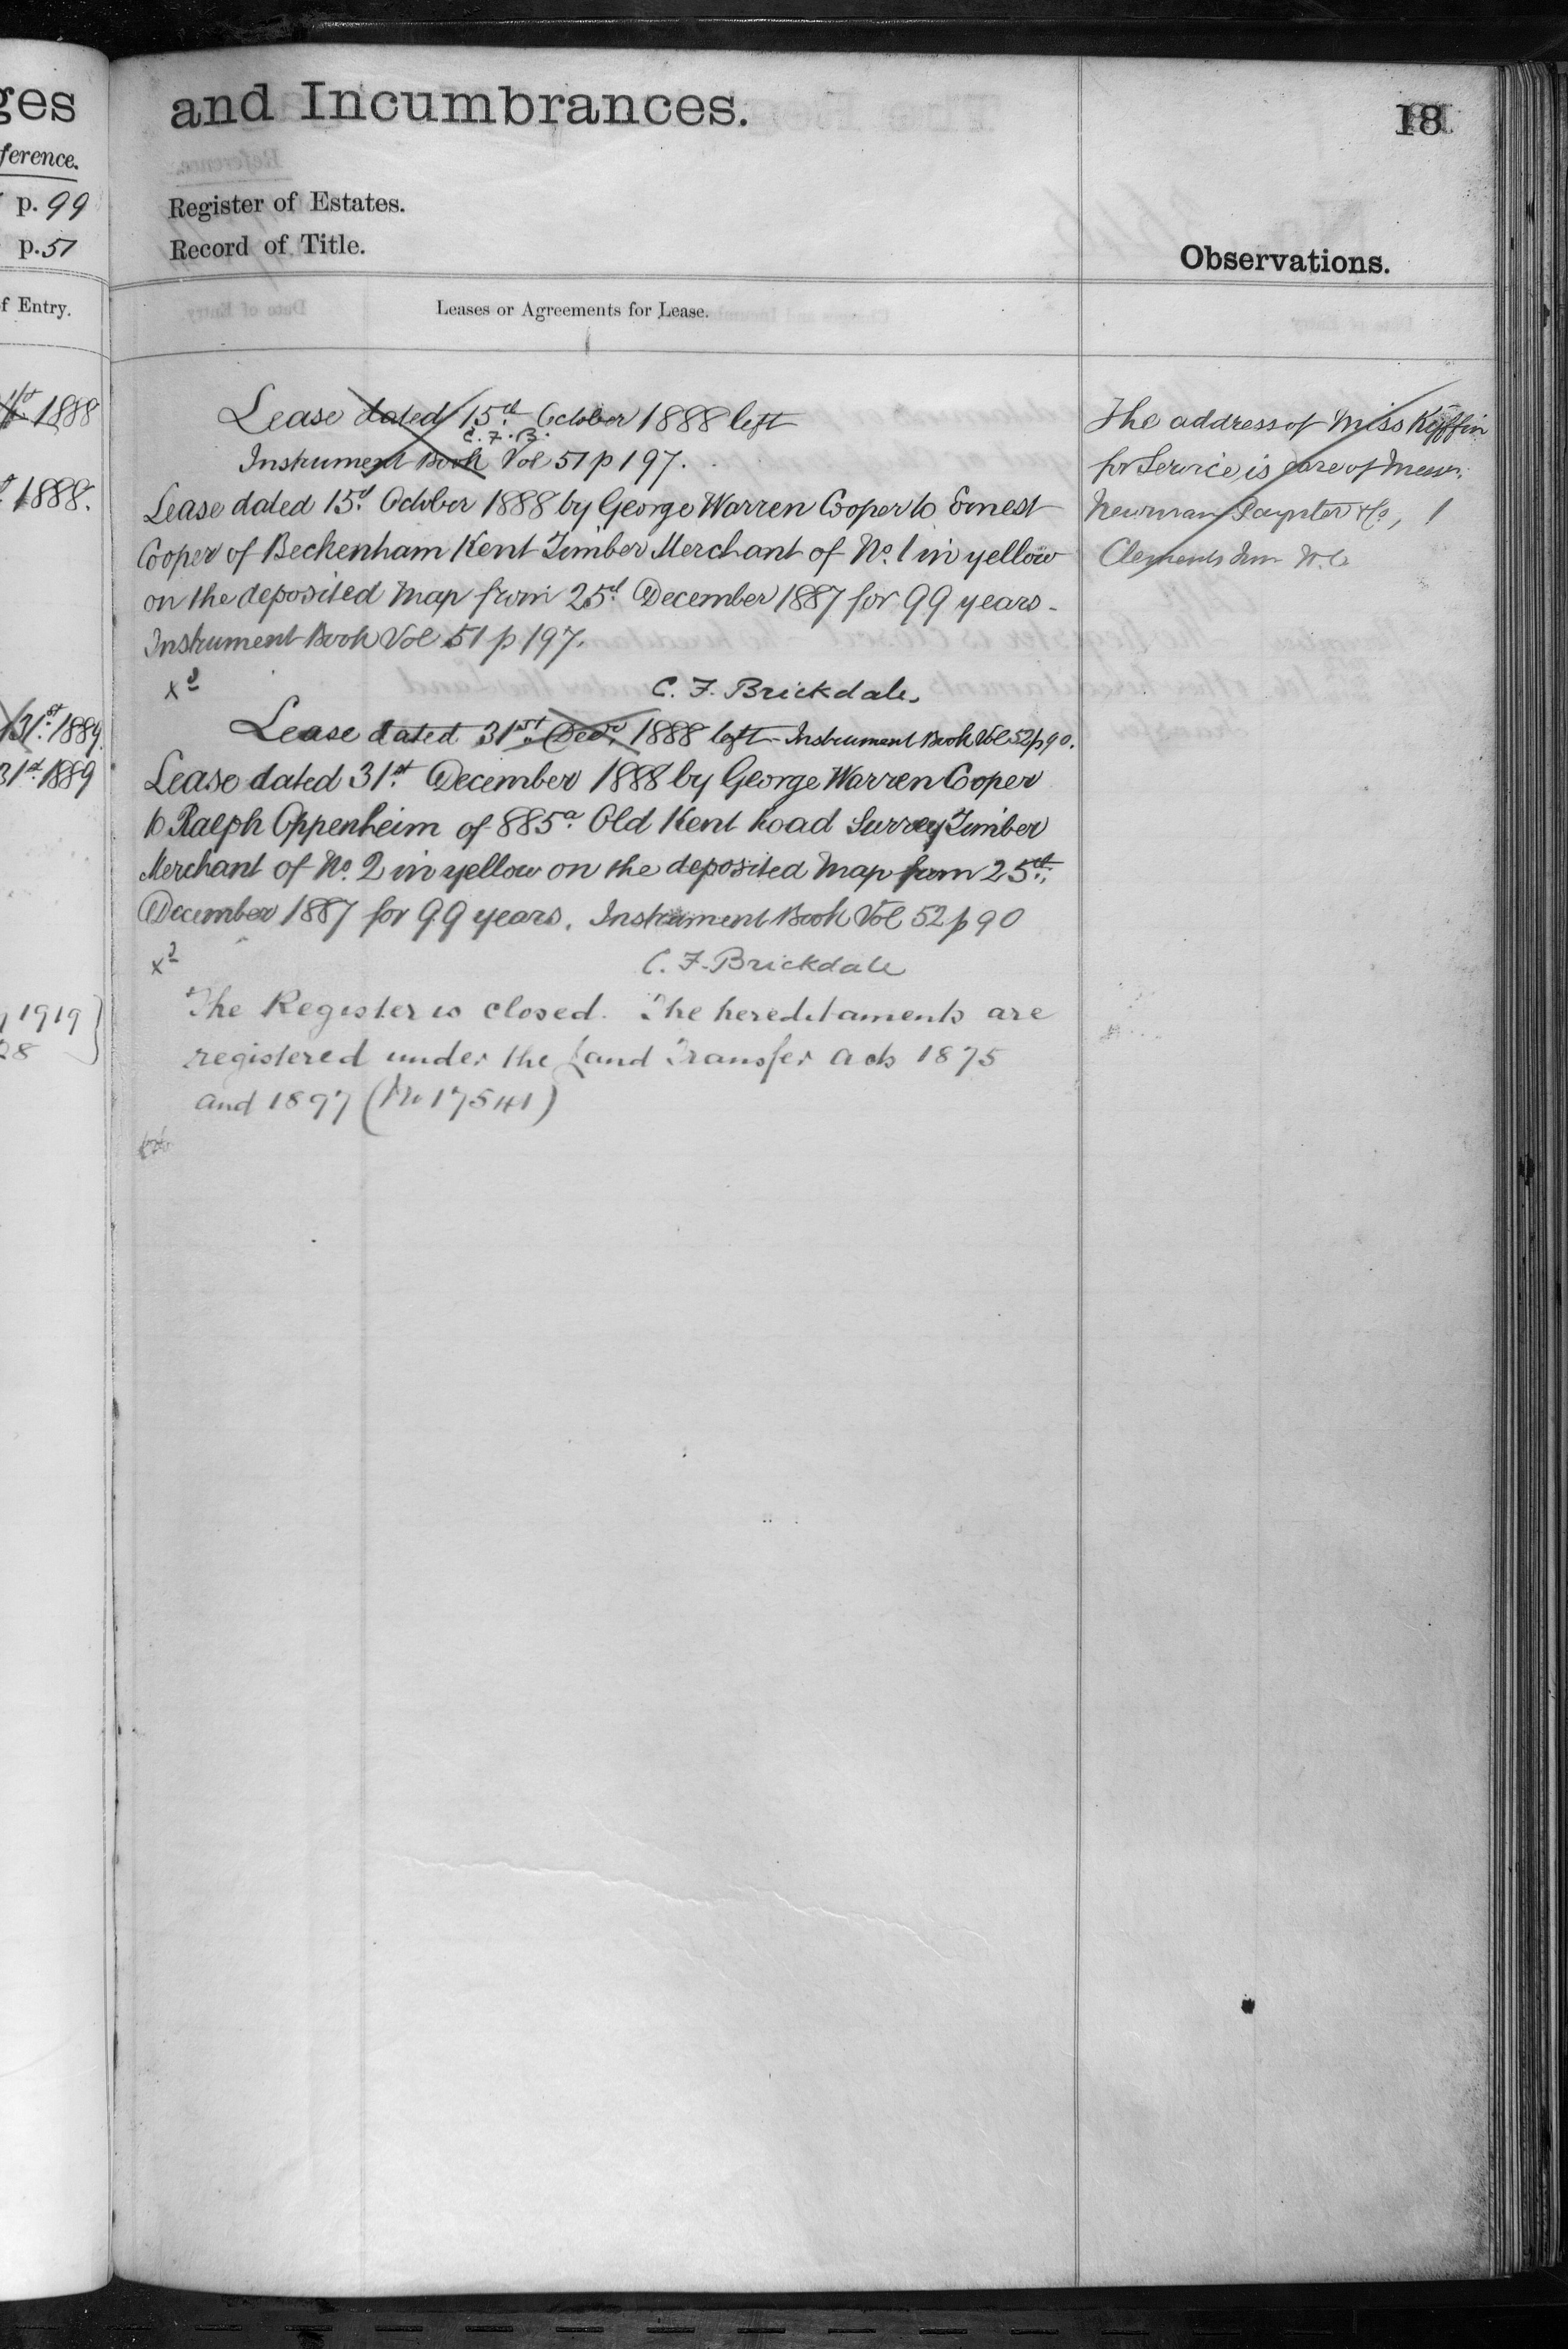 ges
ference.
p. 99
p. 51
f Entry.
1888
1888.
31st 1889.
31st 1889
1919
28
and Incumbrances.
18
Register of Estates.
Record of Title.
Observations.
Leases or Agreements for Lease.
Lease dated 15th October 1888 left
C. F. B.
Instrument Book Vol 51 p 197.
Lease dated 15th October 1888 by George Warren Cooper to Ernest
Cooper of Beckenham Kent Timber Merchant of No. 1 in yellow
on the deposited Map from 25th December 1887 for 99 years.
Instrument Book Vol 51 p 197.
xd
C. F. Brickdale.
Lease dated 31st Decr. 1888 left Instrument Book Vol 52 p 90.
Lease dated 31st December 1888 by George Warren Cooper
to Ralph Oppenheim of 885a Old Kent Road Surrey Timber
Merchant of No. 2 in yellow on the deposited Map from 25th
December 1887 for 99 years. Instrument Book Vol 52 p 90
xd
C. F. Brickdale
The Register is closed. The hereditaments are
registered under the Land Transfer Acts 1875
and 1897 (No 17541)
The address of Miss Kiffin
for Service is care of Messrs.
Newman Paynter & Co, 1
Clements Inn W.C.